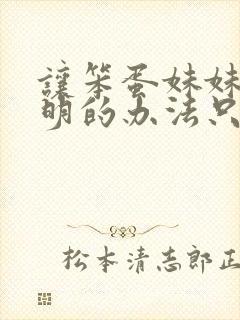 讓笨蛋妹妹
明的办法只
松本清志郎正